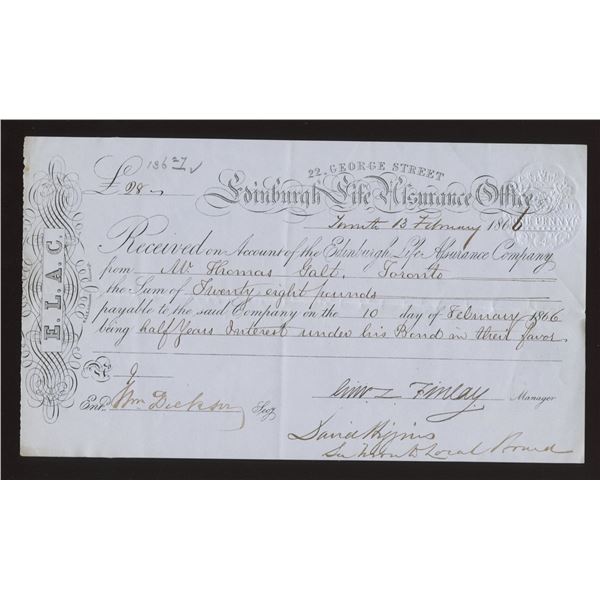 22, GEORGE STREET
136 27/
£ 28 "
Edinburgh Life Assurance Office
Toronto 13 February 1866
PENNY
E.L.A.C.
Received on Account of the Edinburgh Life Assurance Company
from Mr. Thomas Galt, Toronto
the Sum of Twenty eight pounds
payable to the said Company on the 10 day of February 1866
being half Years Interest under his Bond in their favor
£
Entd. Wm Dickson Secy.
Geo. L. Finlay Manager
David Higgins
Sec Toronto Local Board